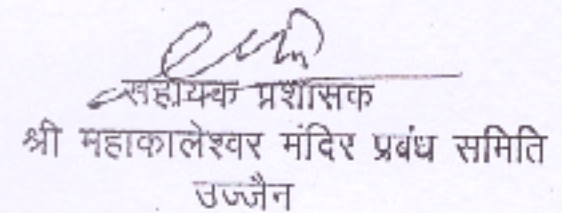 सहायक प्रशासक
श्री महाकालेश्वर मंदिर प्रबंध समिति
उज्जैन